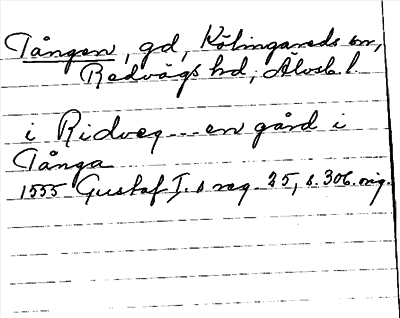 Tången, gd, Kölingareds sn,
Redvägs hd, Älvsb. l.
i Ridveg---en gård i
Tånga
1555 Gustaf I.s reg. 25, s. 306. orig.